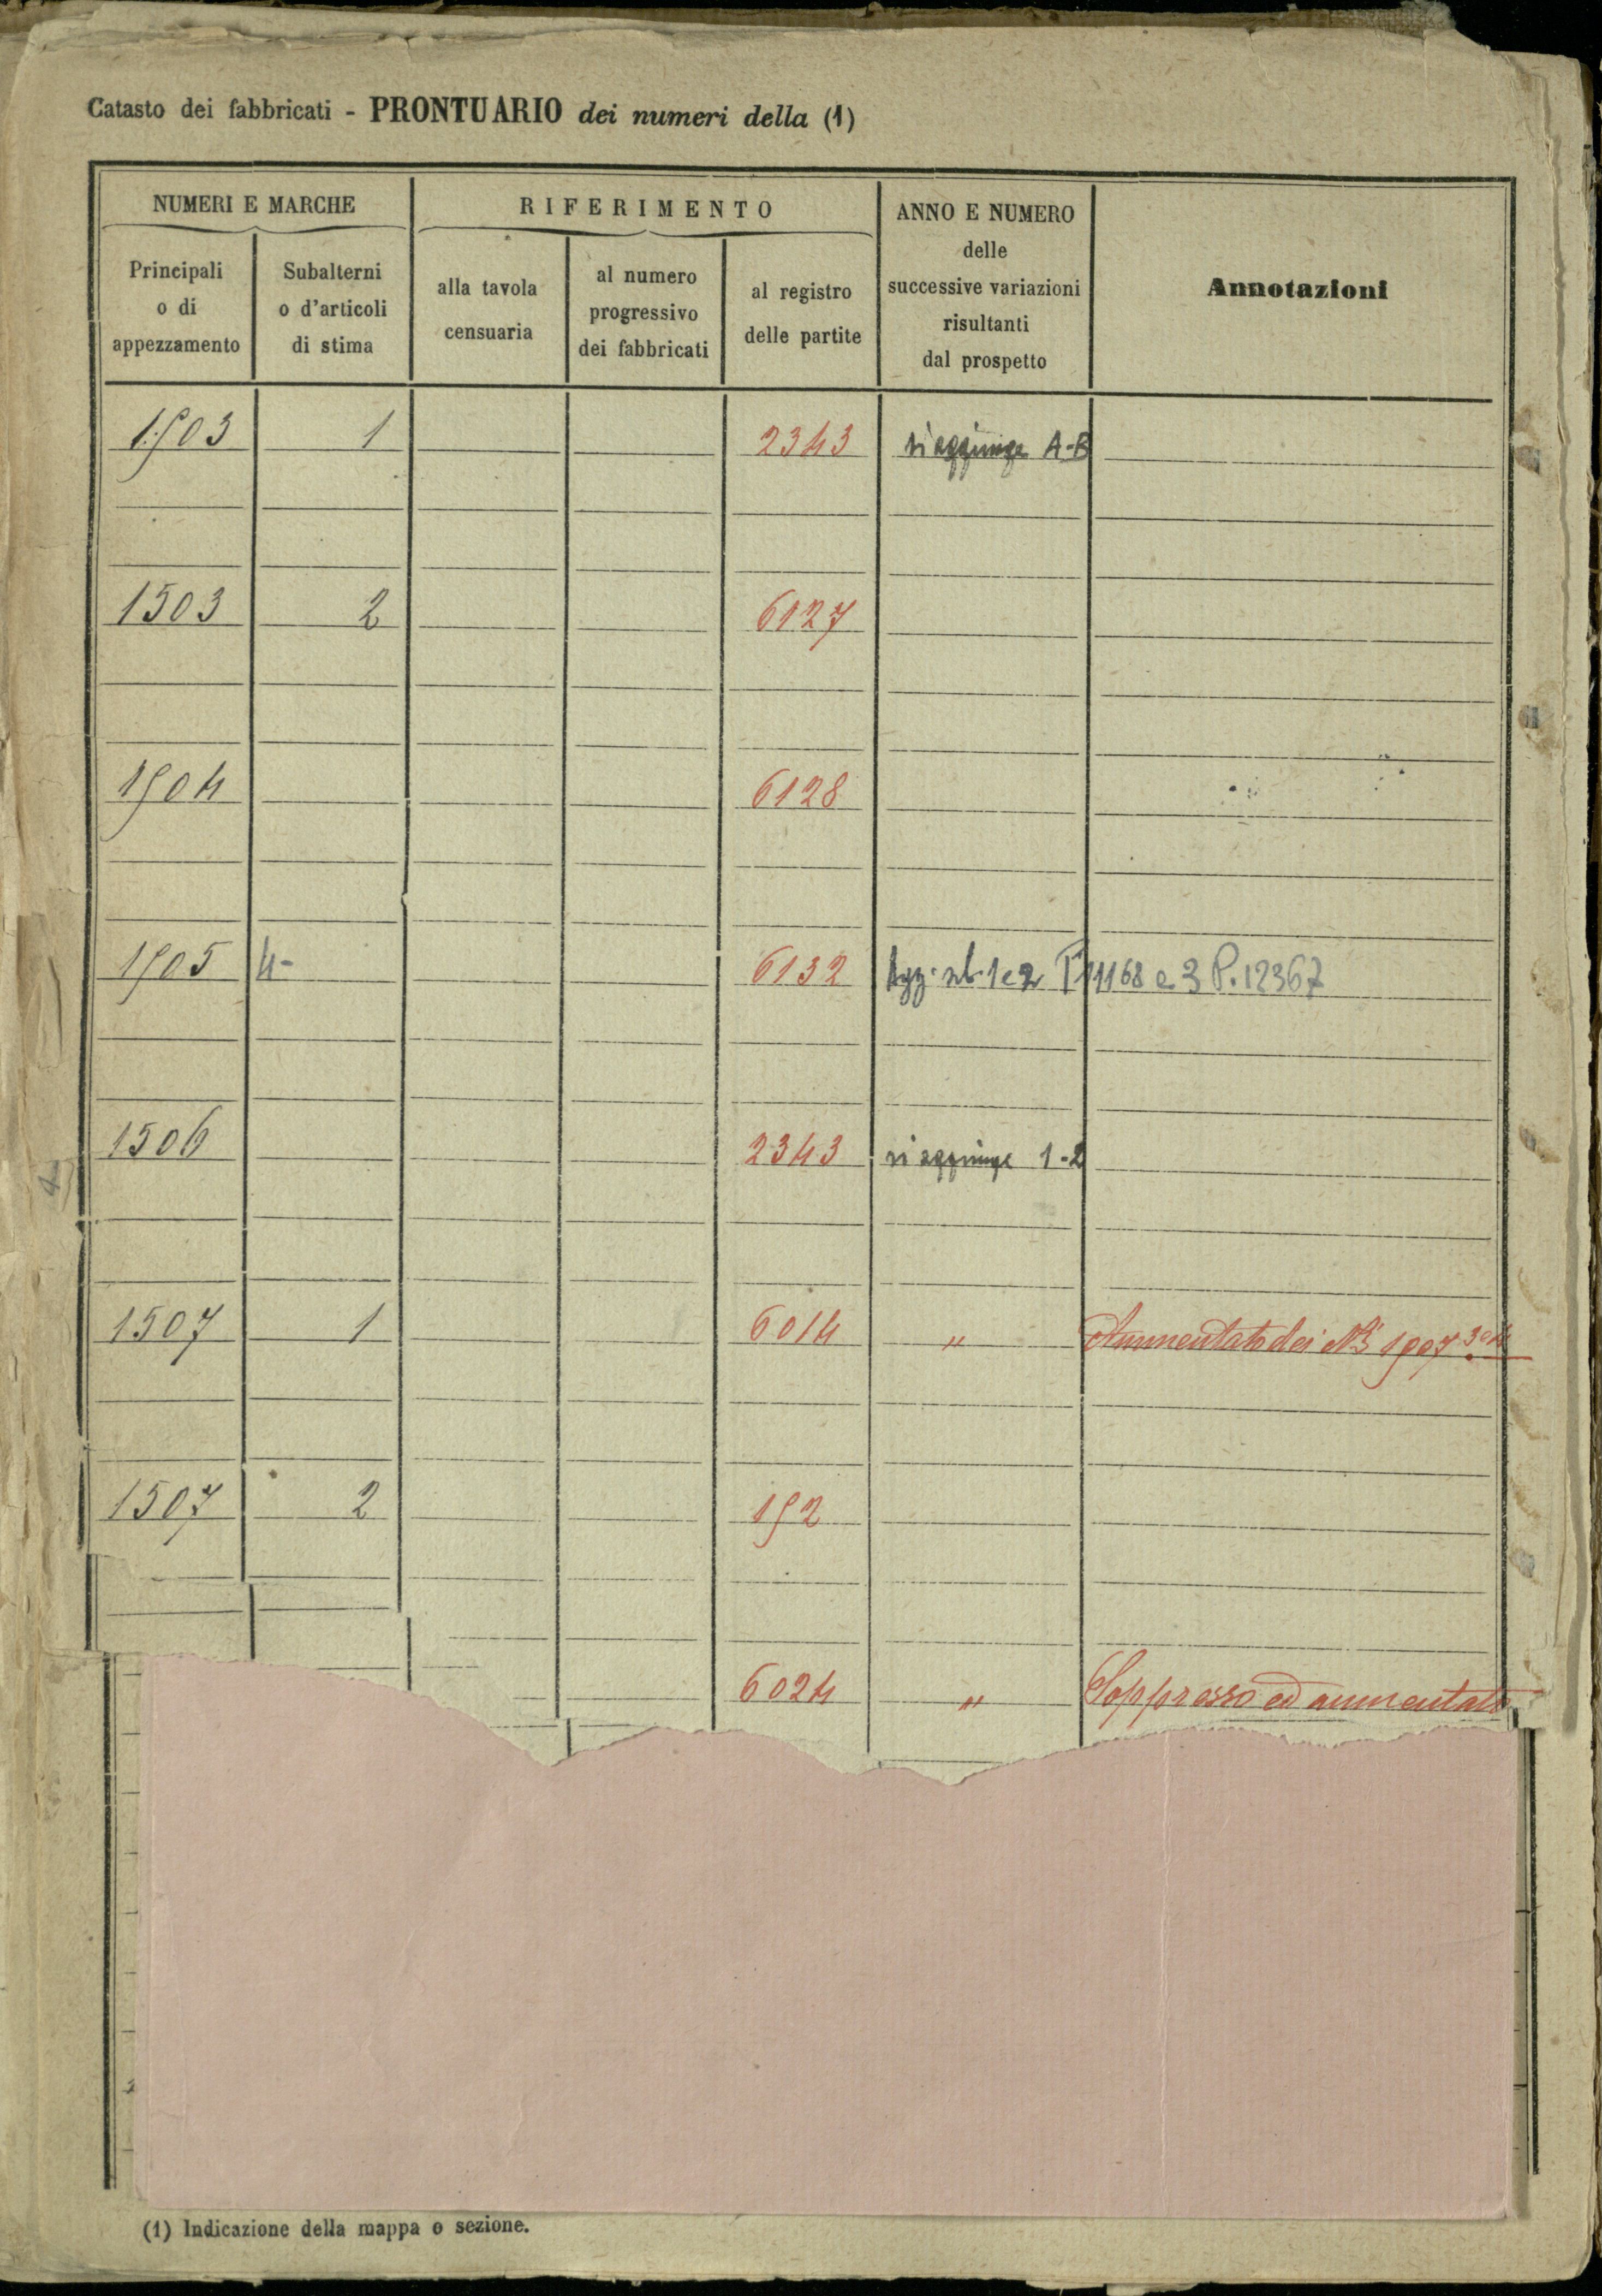 Catasto dei fabbricati - PRONTUARIO dei numeri della (1)
NUMERI E MARCHE
RIFERIMENTO
ANNO E NUMERO
delle
successive variazioni
risultanti
dal prospetto
Annotazioni
Principali
o di
appezzamento
Subalterni
o d'articoli
di stima
alla tavola
censuaria
al numero
progressivo
dei fabbricati
al registro
delle partite
1503 1 2343 si aggiunge A-B
1503 2 6127
1504 6128
1505 4- 6132 Agg. sub. 1 e 2 P. 11168 e 3 P. 12367
1506 2343 si aggiunge 1-2
1507 1 6014 " Aummentato dei Ni 1507 3 e 4
1507 2 152
6024 " Soppresso ed aumentato
(1) Indicazione della mappa o sezione.